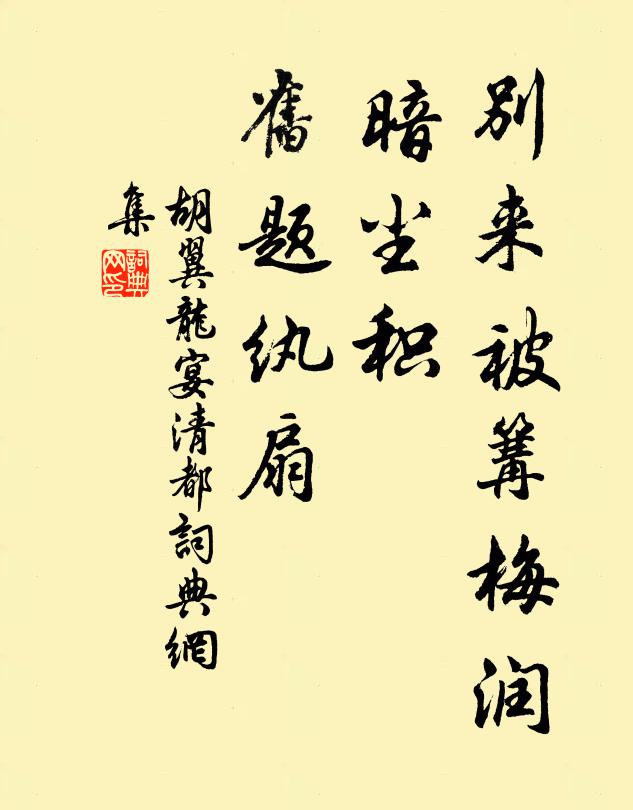 别来被篝梅润
暗尘积
舊题纨扇
胡翼龍宴清都詞典網
集
詞典
网印